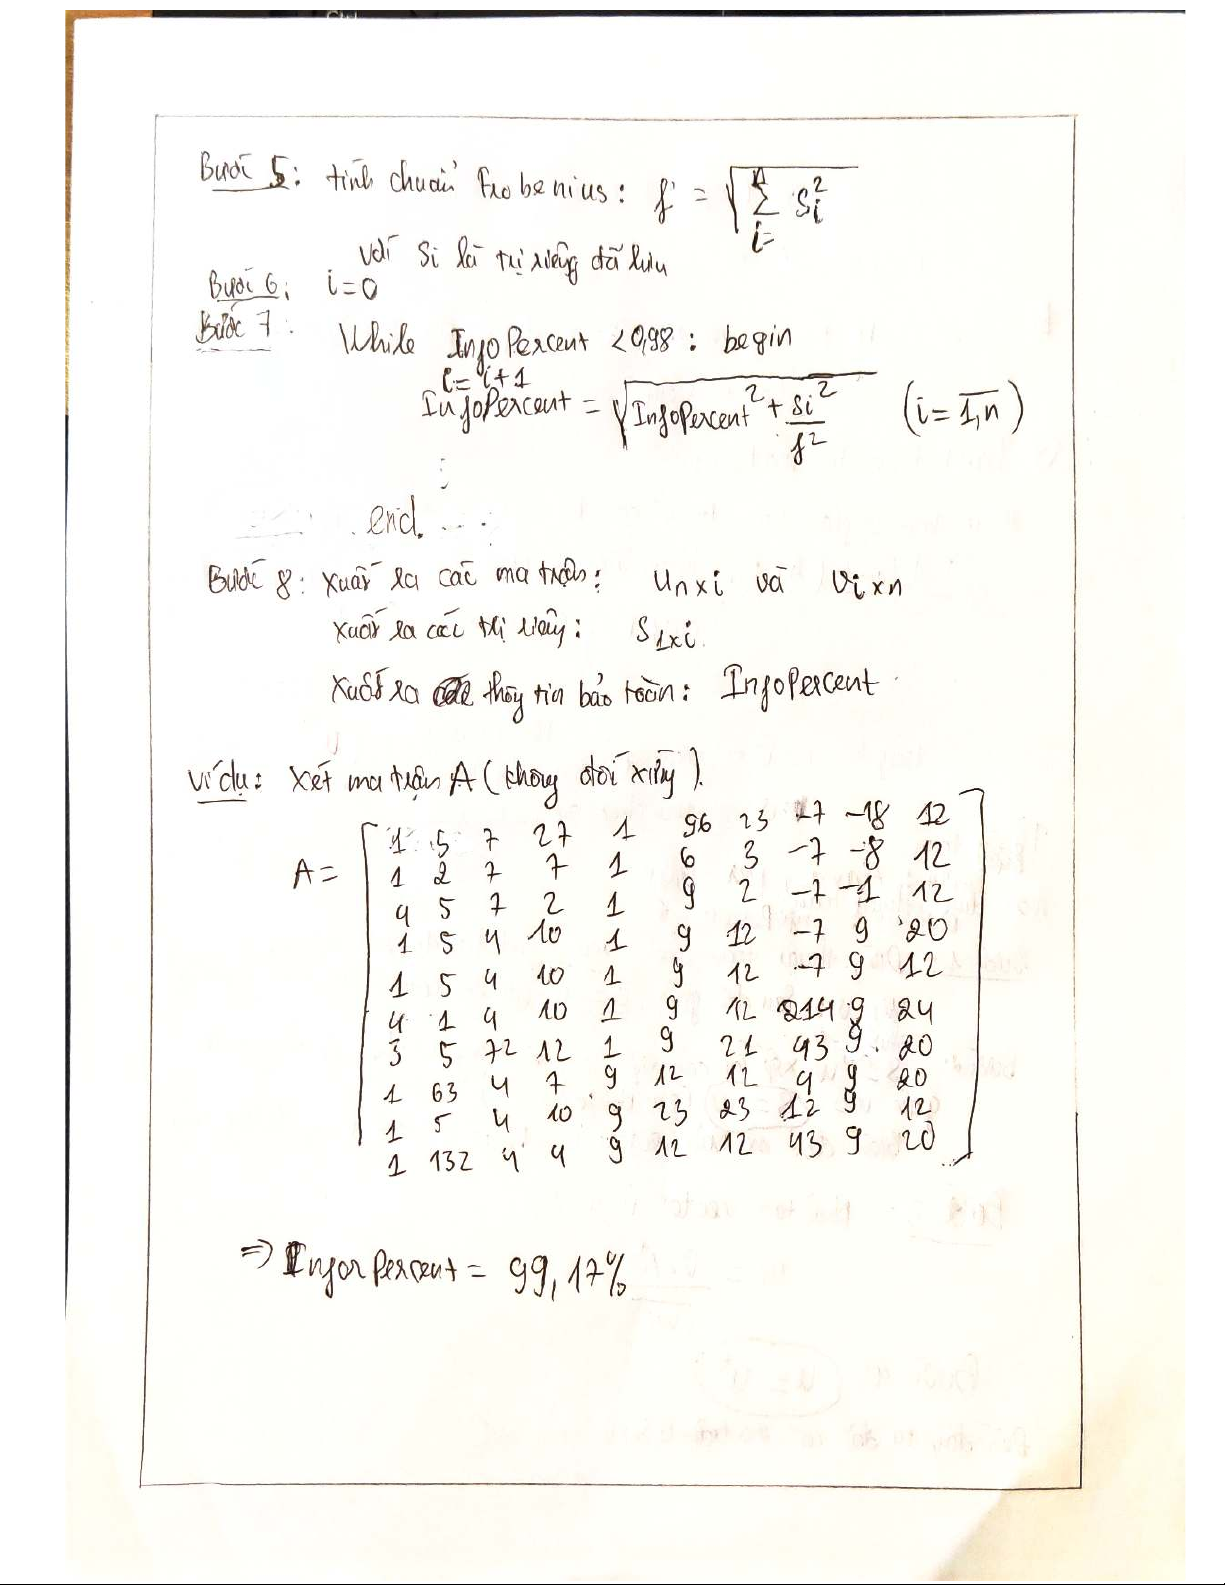 Bước 5: tính chuẩn Frobenius: f = √(∑ᵢ₌ⁿ Si²)
với Si là trị riêng đã lưu
Bước 6: i=0
Bước 7: While InfoPercent <0,98 : begin
i= i+1
InfoPercent = √(InfoPercent² + Si²/f²) (i= 1,n)
end.
Bước 8: Xuất ra các ma trận: Un×i và Vi×n
Xuất ra các trị riêng: S1×i
Xuất ra thông tin bảo toàn: InfoPercent
Ví dụ: Xét ma trận A (không đối xứng).
A=
1 5 7 27 1 96 23 -7 -18 12
1 2 7 7 1 6 3 -7 -8 12
4 5 7 2 1 9 2 -7 -1 12
1 5 4 10 1 9 12 -7 9 20
1 5 4 10 1 9 12 -7 9 12
4 1 4 10 1 9 12 214 9 24
3 5 72 12 1 9 21 43 9 20
1 63 4 7 9 12 12 4 9 20
1 5 4 10 9 23 23 12 9 12
1 132 4 4 9 12 12 43 9 20
=> InforPercent = 99,17%